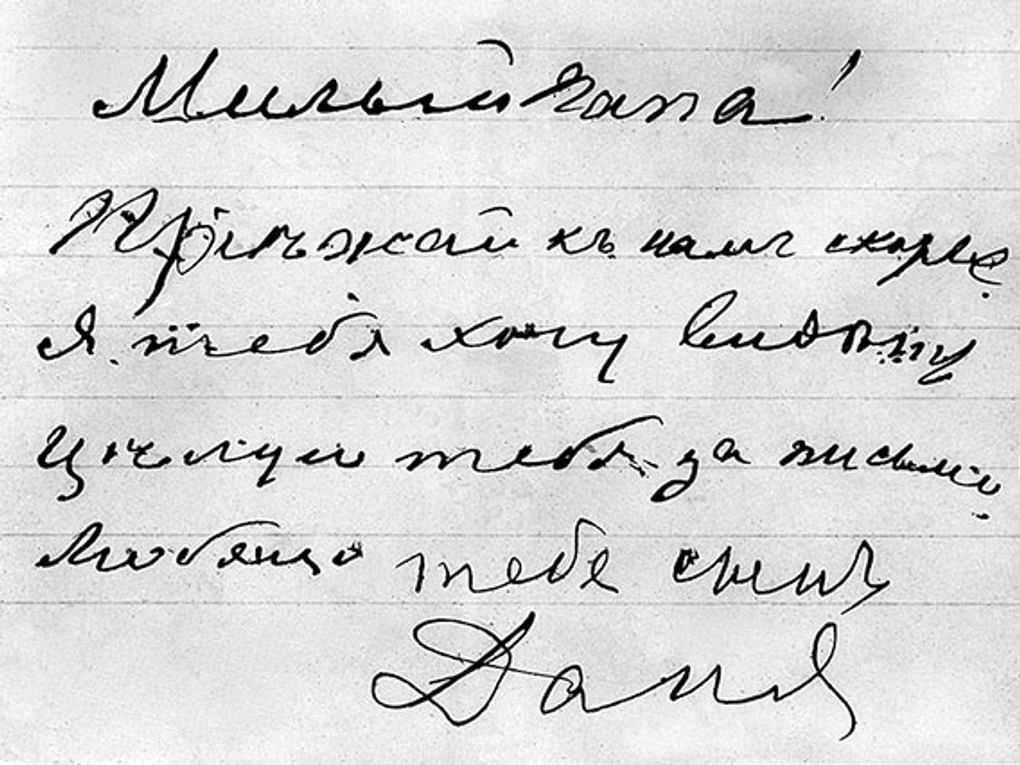 Милый папа!
Пріѣзжай къ намъ скорѣе.
Я тебя хочу
Цѣлую тебя за письмо.
тебе сынъ
Даня